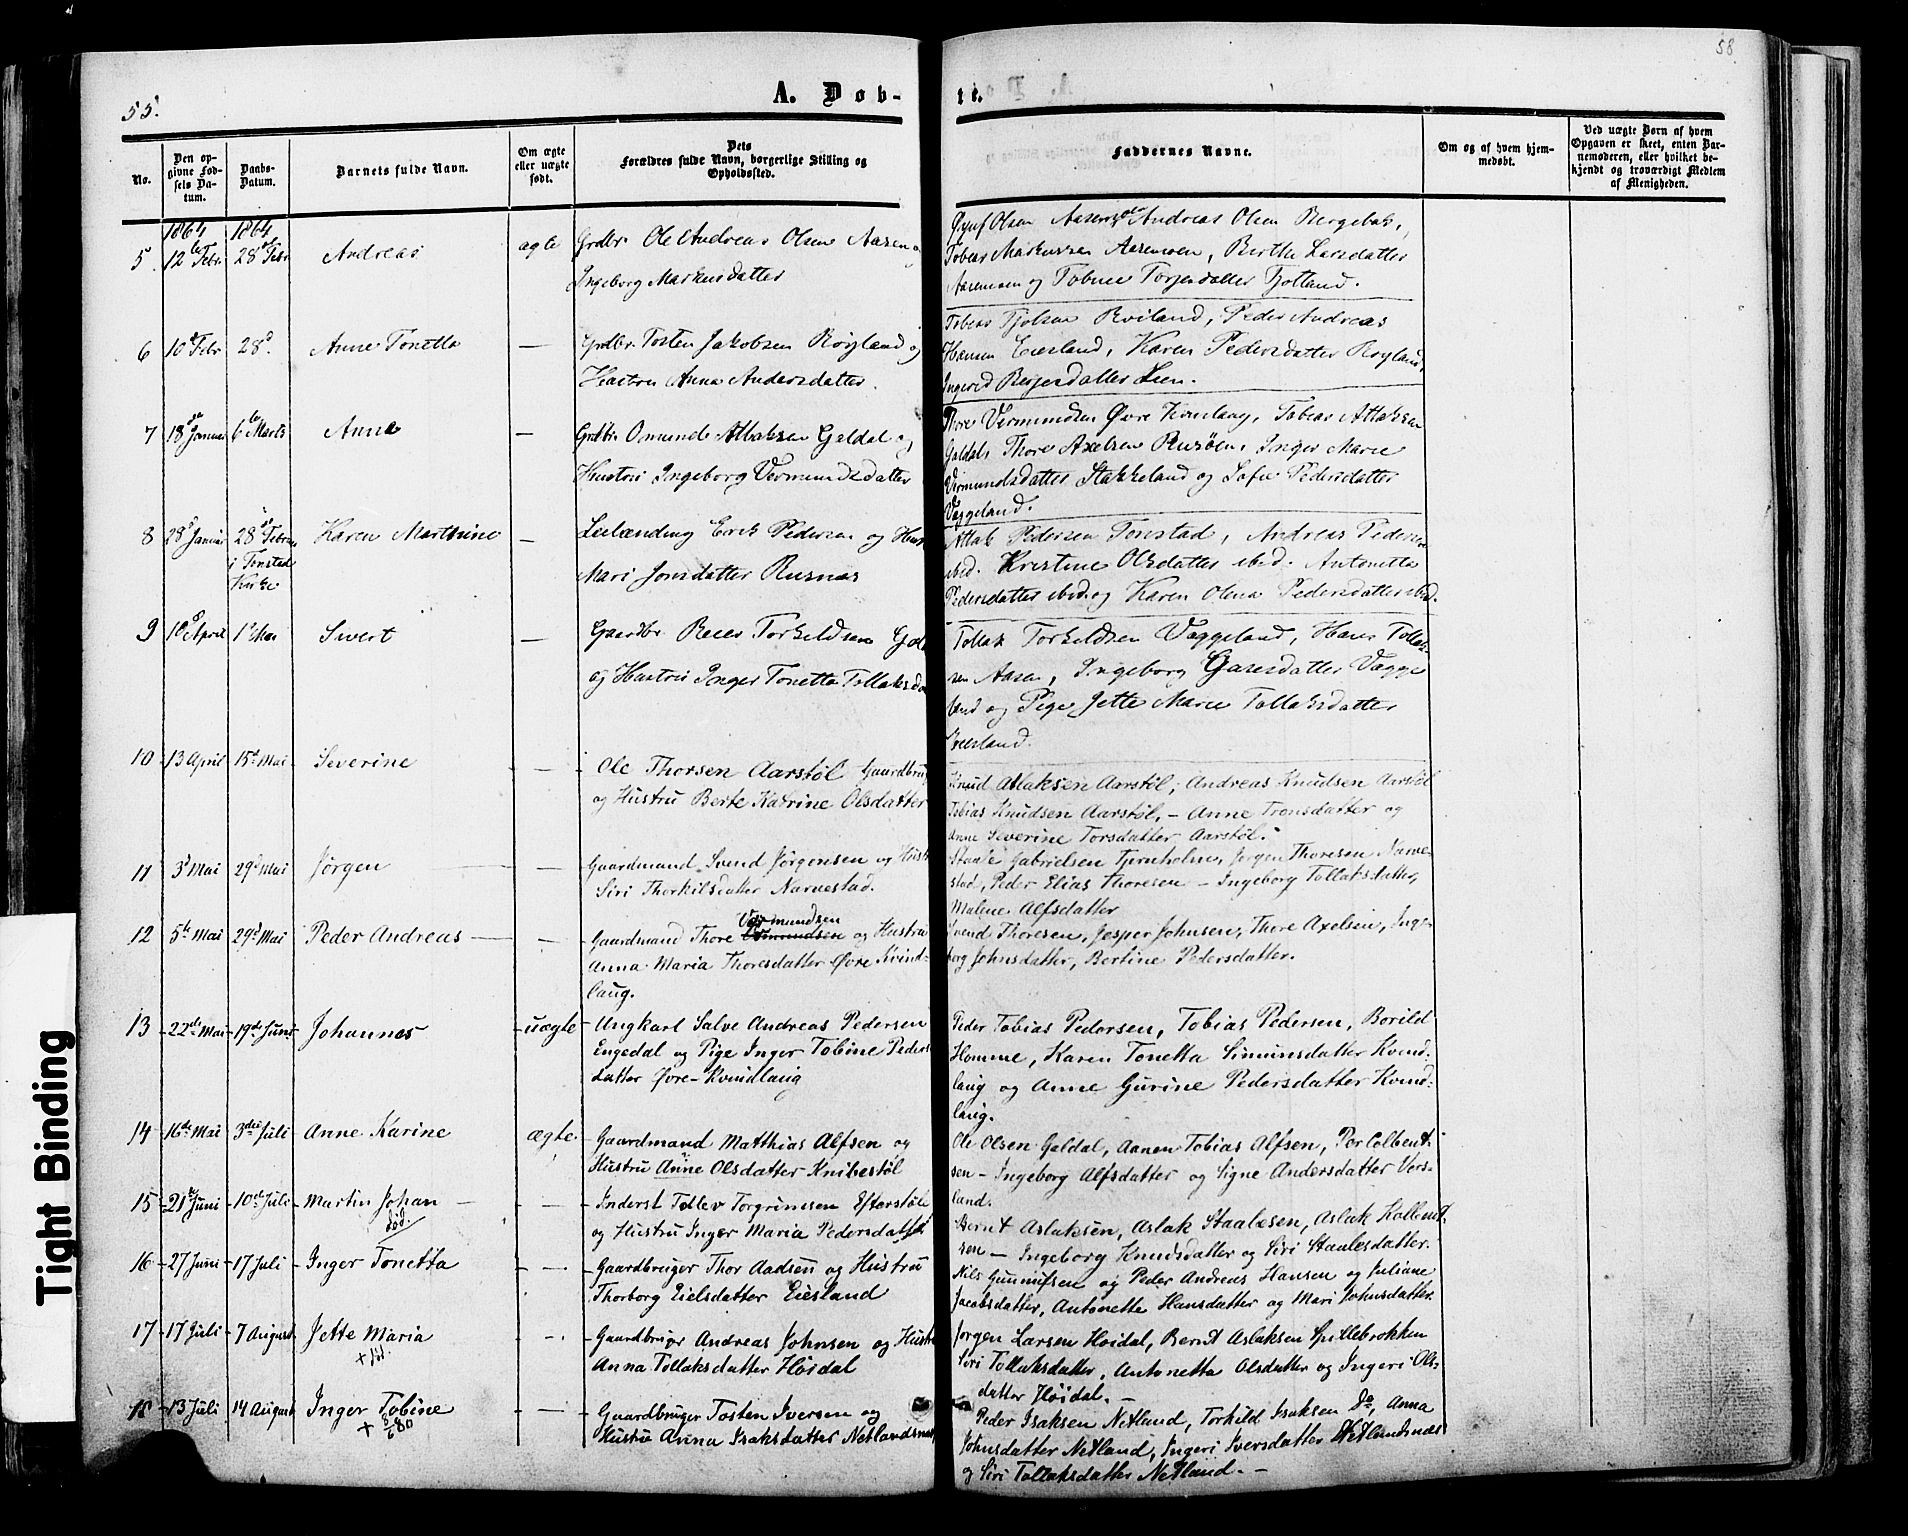 58
55.
A. Døb-
te.
No.
Den op-
givne Fød-
sels Da-
tum.
Daabs-
Datum.
Barnets fulde Navn.
Om ægte
eller uægte
født.
Dets
Forældres fulde Navn, borgerlige Stilling og
Opholdssted.
Faddernes Navne.
Om og af hvem hjem-
medøbt.
Ved uægte Børn af hvem
Opgaven er skeet, enten Bar-
nemoderen, eller hvilket be-
kjendt og troværdigt Medlem
af Menigheden.
1864 1864
5. 12te Febr 28de Febr Andreas ægte Grdbr. Ole Andreas Olsen Aasen og
Ingeborg Markusdatter
Olsen Andreas Olsen
Tobias Markussen Aasemoen, Berthe Larsdatter
Aasemoen og Tobine Torjersdatter Tjotland.
6 10d Febr 28d. Anne Tonetta — Grdbr. Tosten Jakobsen Røyland og
Hustru Anna Andersdatter.
Tobias Tjølsen Roiland, Peder Andreas
Hansen Eiesland, Karen Pedersdatter Royland,
Ingerid Bergesdatter Lien.
7 18de Januar 6te Marts Anne — Grdbr. Osmund Atlaksen Galdal og
Hustru Ingeborg Vermundsdatter
Thore Vermundsen Øvre Kvinlaug, Tobias Atlaksen
Galdal, Thore Axelsen Rusøen, Inger Marie
Vermundsdatter Stakkeland og Sofie Pedersdatter
Væggeland.
8 28d Januar 28de Februar
i Tonstad
Kirke
Karen Marthine — Leilænding Erik Pedersen og Hust
Mari Jonsdatter Rusnes
Atlak Pedersen Tonstad, Andreas Pedersen
ibid. Kristine Olsdatter ibid. Antonetta
Pedersdatter ibid. og Karen Olena Pedersdatter ibid.
9 10d April 1d Mai Sivert — Gaardbr. Reier Torkeldsen Gal
og Hustru Inger Tonetta Tollaksda
Tollak Torkeldsen Væggeland, Hans Tollak-
sen Aasen, Ingeborg Gasesdatter Vægge
land og Pige Jette Marie Tollaksdatter
Eiesland.
10 13 April 15d Mai Severine — Ole Thorsen Aarstøl Gaardbrug
og Hustru Berte Katrine Olsdatter
Knud Atlaksen Aarstøl; Andreas Knudsen Aarstøl
Tobias Knudsen Aarstøl, – Anne Tronsdatter og
Anne Severine Torsdatter Aarstøl.
11 3d Mai 29d Mai Jørgen — Gaardmand Svend Jørgensen og Hustr
Siri Thorkilsdatter Narvestad.
Staale Gabrielsen Tjernholm, Jørgen Thoresen Narve-
stad, Peder Elias Thoresen – Ingeborg Tollaksdatter,
Malene Alfsdatter
12 5te Mai 29d Mai Peder Andreas — Gaardmand Thore Vermundsen og Hustru
Anna Maria Thoresdatter Øvre Kvind-
laug.
Svend Thoresen, Jesper Johnsen, Thore Axelsen, Inge-
borg Johnsdatter, Bertine Pedersdatter.
13 22de Mai 19de Juni Johannes uægte Ungkarl Salve Andreas Pedersen
Engedal og Pige Inger Tobine Peders
datter Øvre-Kvindlaug
Peder Tobias Pedersen, Tobias Pedersen, Borild
Homme, Karen Tonetta Simunsdatter Kvind-
laug og Anne Gurine Pedersdatter Kvind-
laug.
14 16de Mai 3die Juli Anne Karine ægte. Gaardmand Matthias Alfsen og
Hustru Anne Olsdatter Knibestøl
Ole Olsen Galdal, Aanen Tobias Alfsen, Per Colbent-
sen – Ingeborg Alfsdatter og Signe Andersdatter Vers-
land.
15 21de Juni 10de Juli Martin Johan
død.
— Inderst Tollev Torgrimsen Efterstøle
og Hustru Inger Maria Pedersdatter
Bernt Aslaksen, Aslak Staalesen, Aslak Kollent-
sen – Ingeborg Knudsdatter og Siri Staalesdatter.
16 27 Juni 17 Juli Inger Tonetta — Gaardbruger Thor Aadsen og Hustru
Thorborg Eielsdatter Eiesland
Nils Gunnufsen og Peder Andreas Hansen og Juliane
Jacobsdatter, Antonette Hansdatter og Mari Johnsdatter.
17 17 Juli 7 August Jette Maria
+ død.
— Gaardbruger Andreas Johnsen og Hustr
Anna Tollaksdatter Høidal
Jørgen Larsen Hoidal, Bernt Aslaksen Spillebrokken
Siri Tollaksdatter, Antonetta Olsdatter og Ingeri Ols-
datter Høidal. –
18 13 Juli 14 August Inger Tobine
+ 8/6 80
— Gaardbruger Tosten Iversen og
Hustru Anna Isaksdatter Netlandsnes
Peder Isaksen Netland, Torkild Isaksen Do, Anna
Johnsdatter Netland, Ingeri Iversdatter Netlandsnæs
og Siri Tollaksdatter Netland. –
Tight Binding